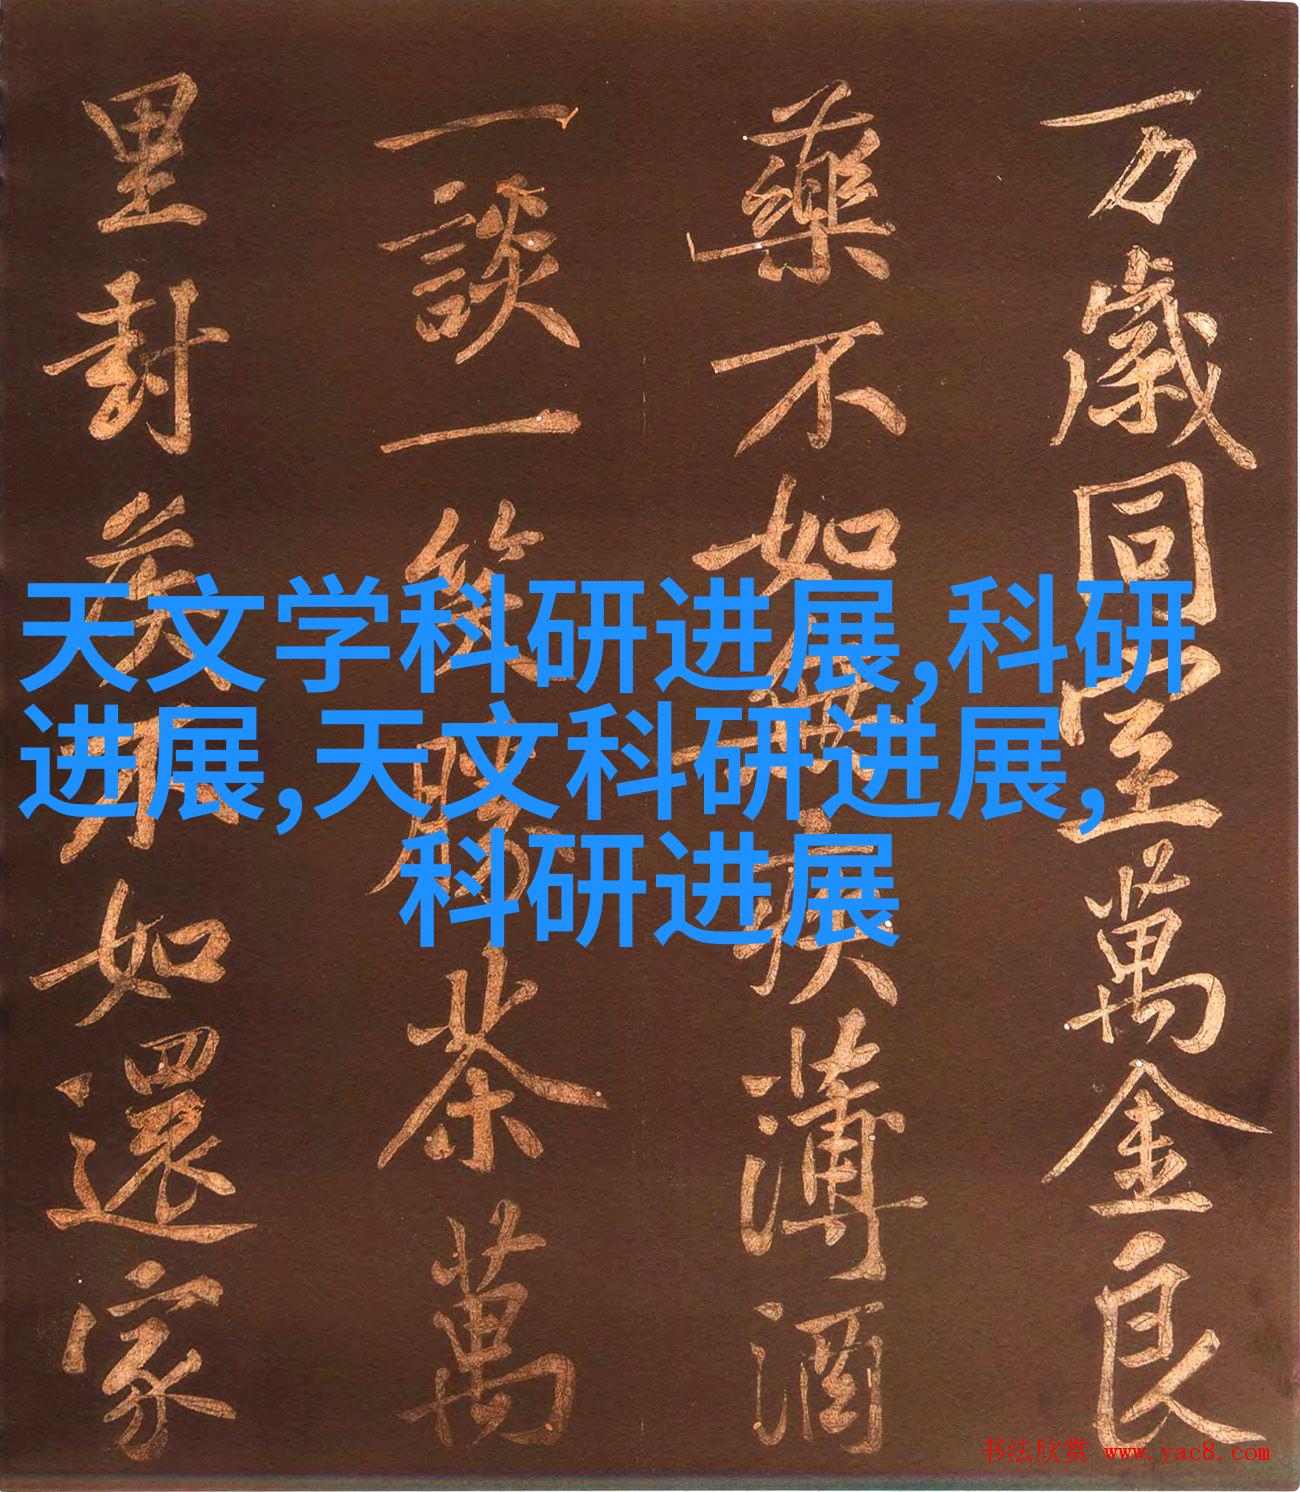 万歲同室萬金良
藥不如無疾薄酒
一談一笑勝茶萬
里封矦如還家
天文学科研进展,科研
进展,天文科研进展,
科研进展
书法欣赏 www.yac8.com